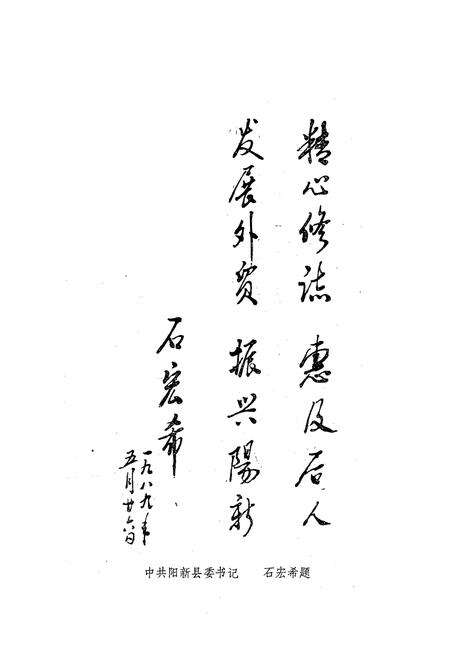 精心修誌 惠及后人
发展外贸 振兴陽新
石宏希
一九八九年
五月廿六日
中共阳新县委书记 石宏希题